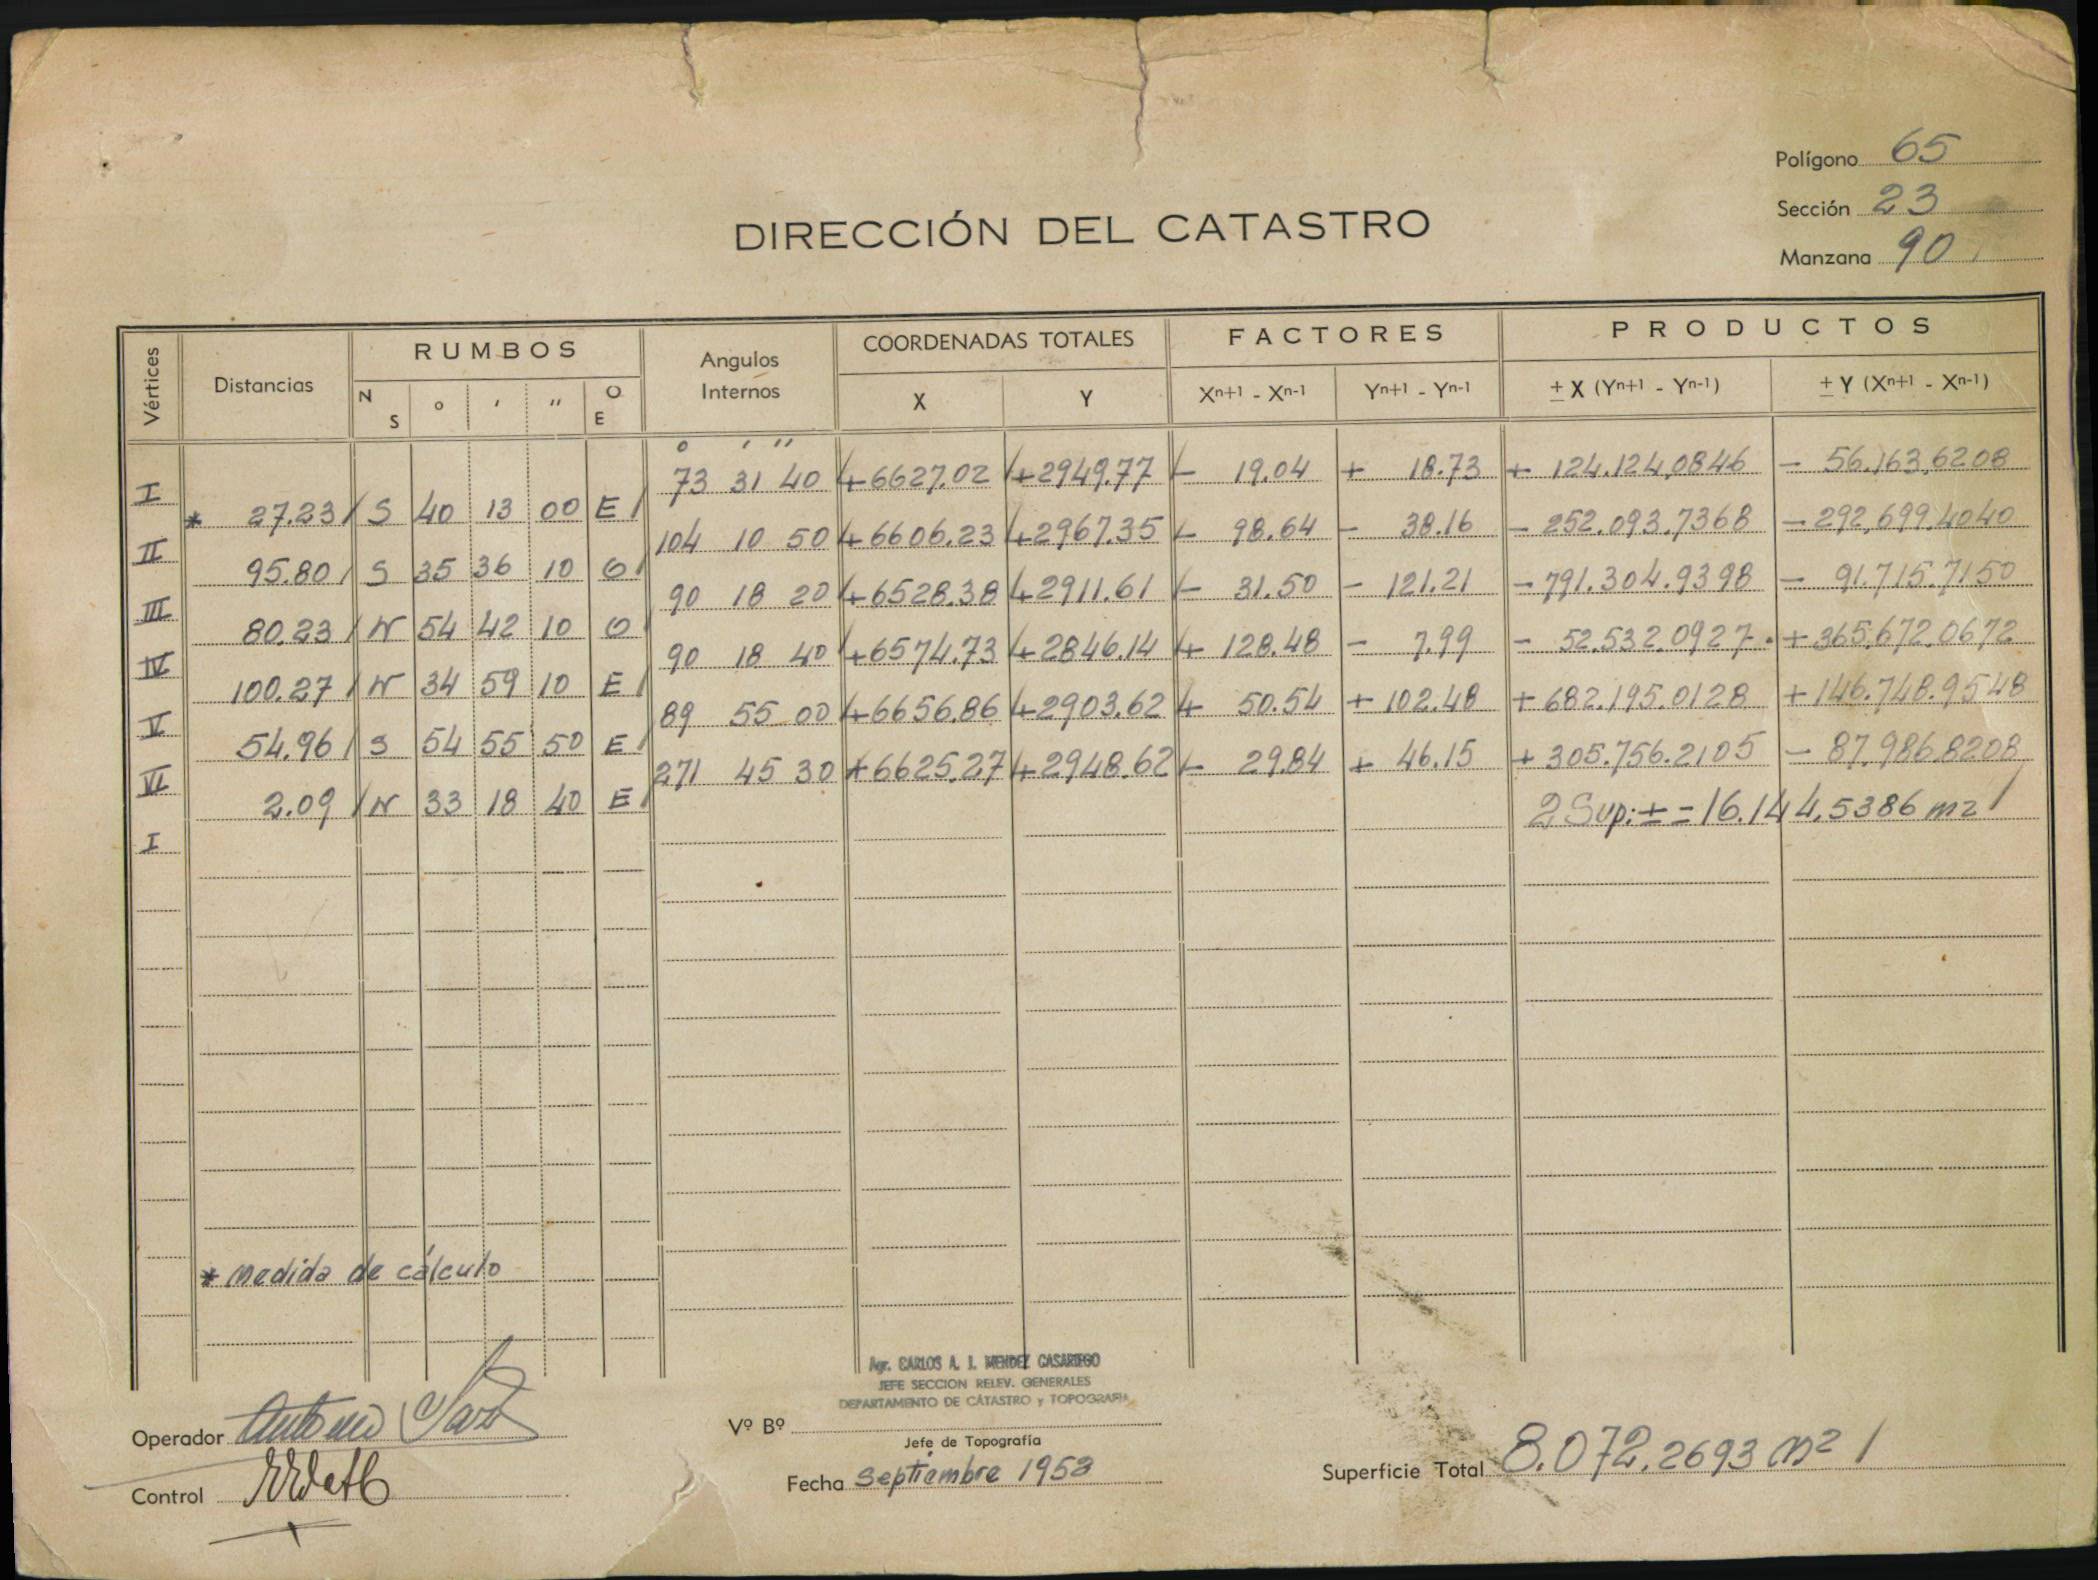 Polígono 65
Sección 23
Manzana 90
DIRECCIÓN DEL CATASTRO
Vértices Distancias RUMBOS Angulos Internos COORDENADAS TOTALES FACTORES PRODUCTOS
N S ° ' '' O E X Y Xn+1 - Xn-1 Yn+1 - Yn-1 ± X (Yn+1 - Yn-1) ± Y (Xn+1 - Xn-1)
° ' ''
I 73 31 40 +6627.02 +2949.77 - 19.04 + 18.73 + 124.124,0846 - 56.163,6208
* 27.23 S 40 13 00 E
II 104 10 50 +6606.23 +2967.35 - 98.64 - 38.16 - 252.093.7368 - 292,699.4040
95.80 S 35 36 10 O
III 90 18 20 +6528.38 +2911.61 - 31.50 - 121.21 - 791.304.9398 - 91.715.7150
80.23 N 54 42 10 O
IV 90 18 40 +6574.73 +2846.14 + 128.48 - 7.99 - 52.532.0927 + 365.672.0672
100.27 N 34 59 10 E
V 89 55 00 +6656.86 +2903.62 + 50.54 + 102.48 + 682.195.0128 + 146.748.9548
54.96 S 54 55 50 E
VI 271 45 30 +6625.27 +2948.62 - 29.84 + 46.15 + 305.756.2105 - 87.986.8208
2.09 N 33 18 40 E
2 Sup: ± = 16.144.5386 m2
I
* medida de cálculo
Agr. CARLOS A. I. MENDEZ CASARIEGO
JEFE SECCION RELEV. GENERALES
DEPARTAMENTO DE CATASTRO y TOPOGRAFIA
Operador Antonio
Vº Bº
Jefe de Topografía
Control
Fecha Septiembre 1953
Superficie Total 8.072.2693 m2